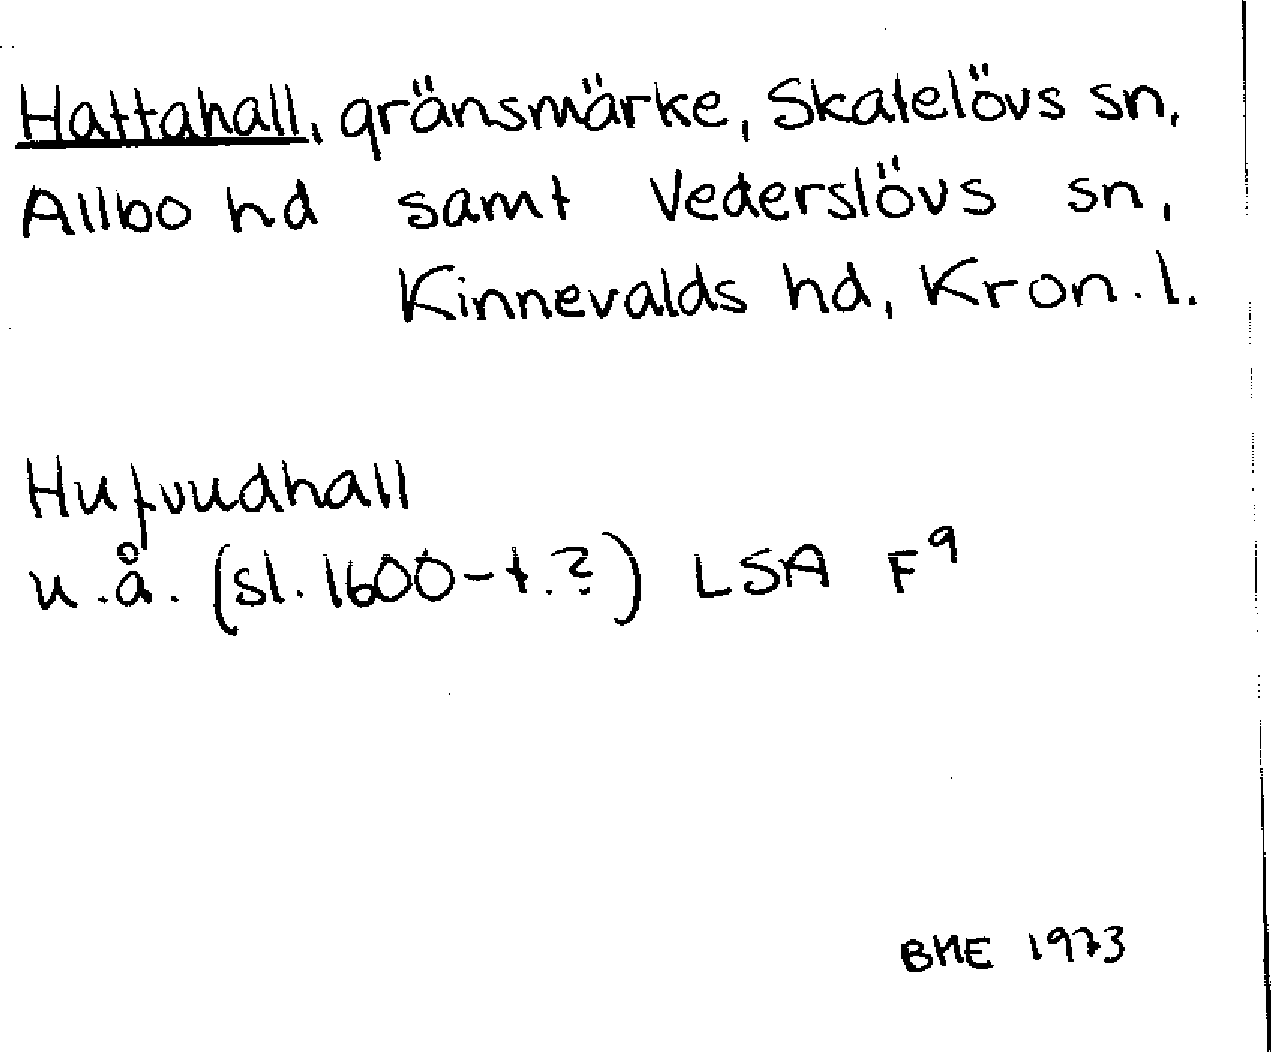 Hattahall, gränsmärke, Skatelövs sn,
Allbo hd samt Vederslövs sn,
Kinnevalds hd, Kron. l.
Hufvudhall
u.å. (sl. 1600-t.?) LSA F⁹
BME 1973